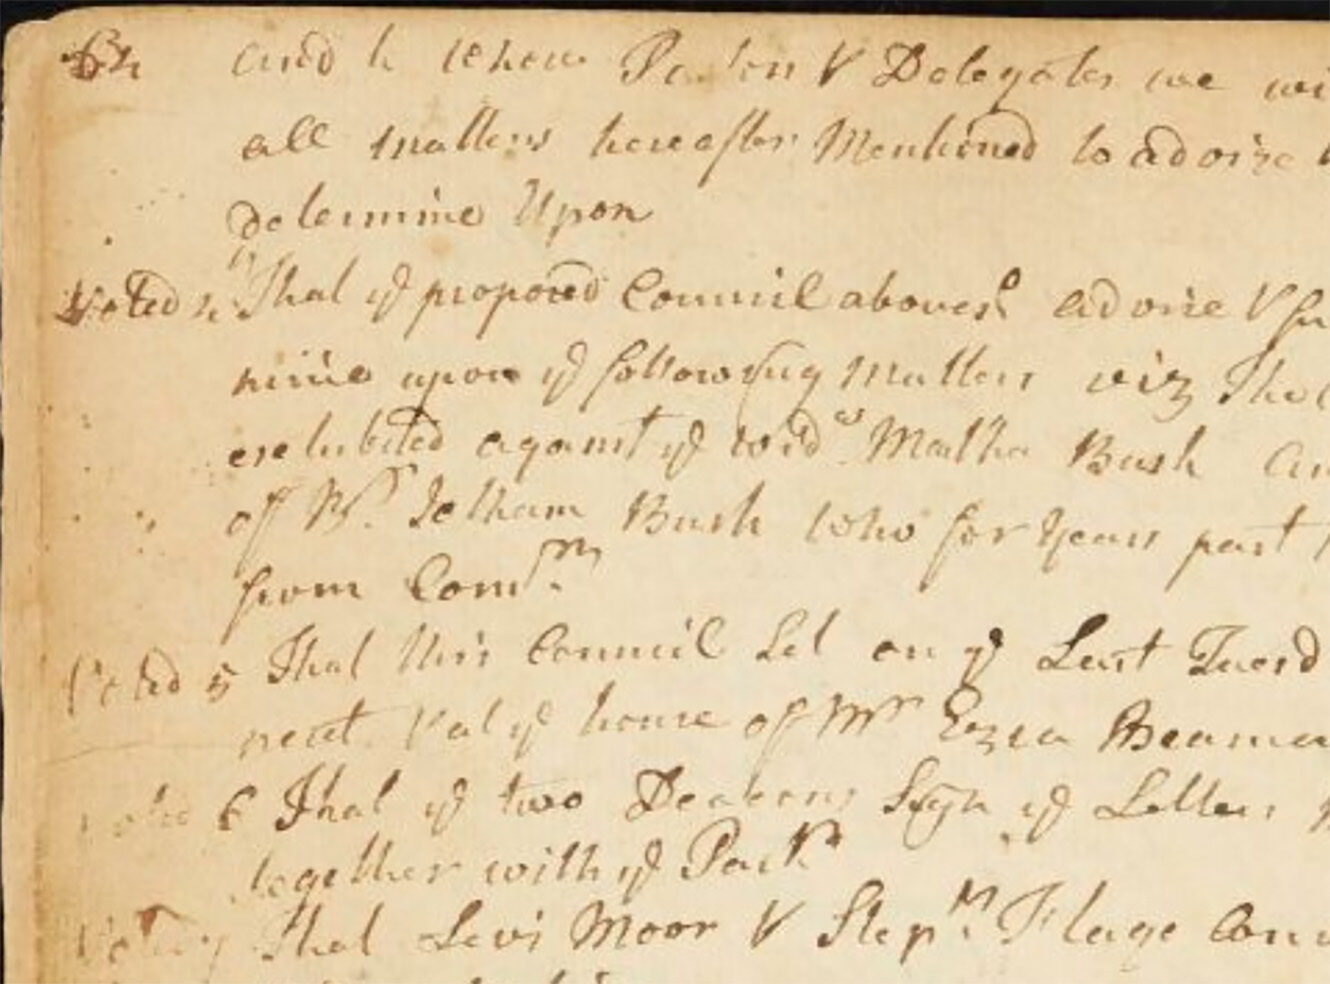 64 and to whose Pastors & Delegates we
all matters hereafter Mentioned to advise
determine Upon
Voted 4 That ye proposed Council abovesd advise &
mine upon ye following Matters viz
exhibited against ye Widw Martha Bush
of Bṛ Jotham Bush who for years past
from Comn
Voted 5 That this Council Set on ye Last Tuesd
next & at ye house of Mr Ezra Beaman
Voted 6 That ye two Deacons Sign ye Letters
together with ye Pastr
Voted 7 That Levi Moor & Stepn Flagg